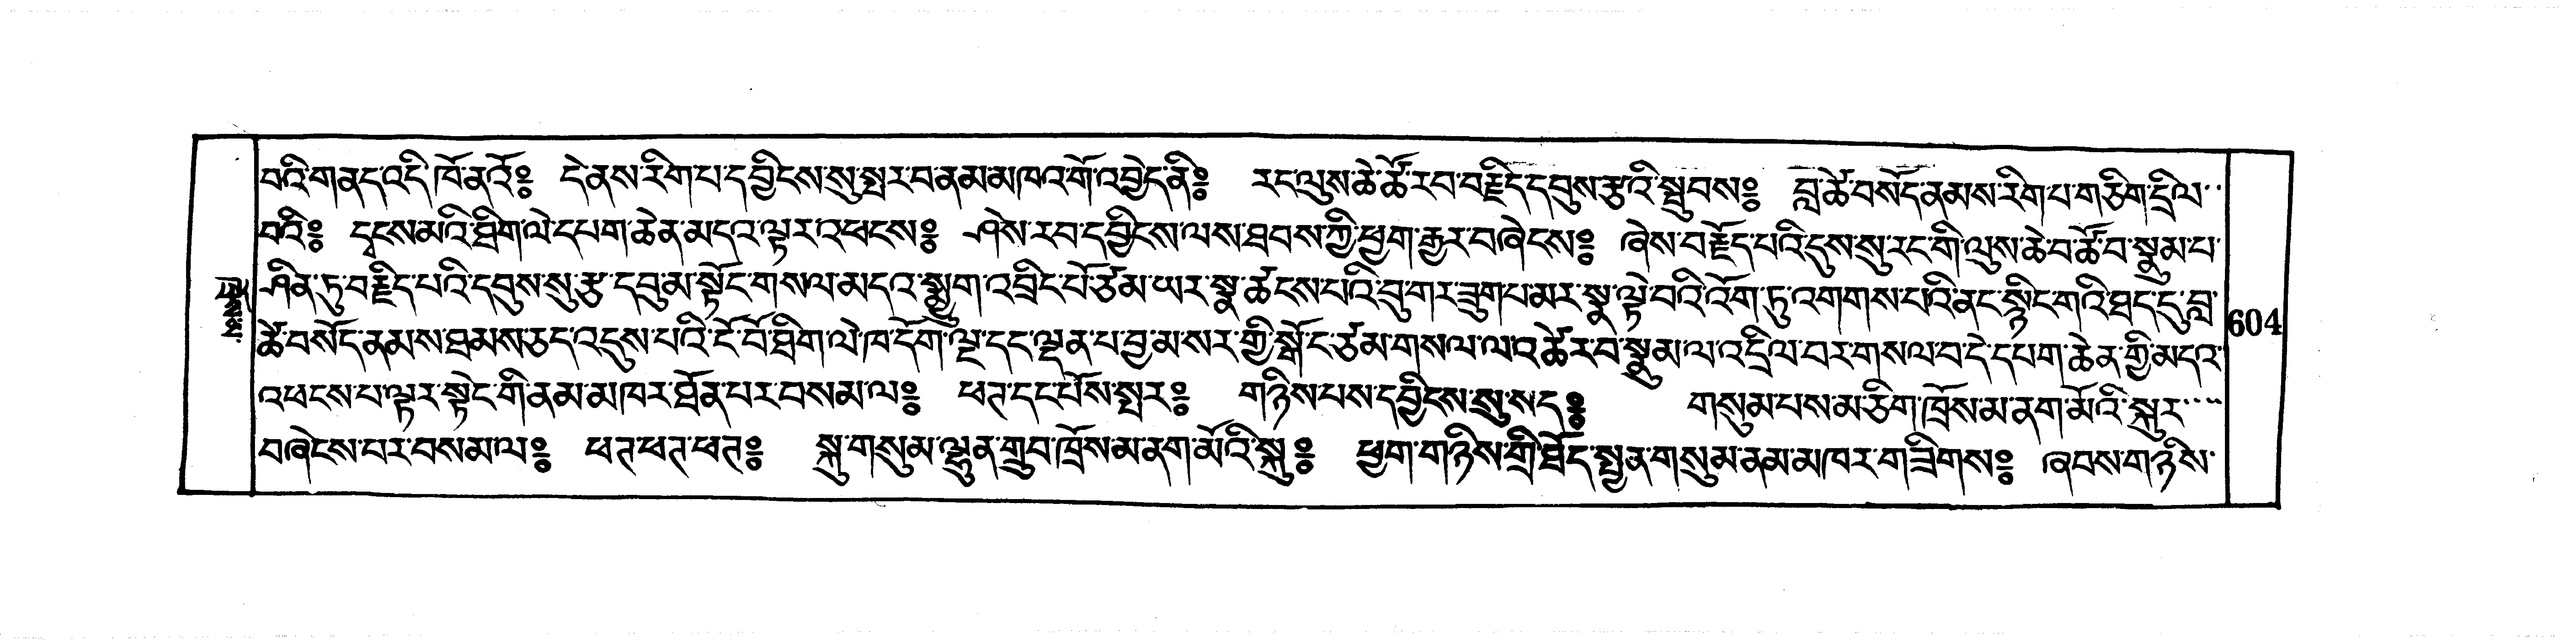 བའི་གནད་འདི་ཁོ་ནའོ༔ དེ་ནས་རིག་པ་དབྱིངས་སུ་སྤར་བ་ནམ་མཁའ་གོ་འབྱེད་ནི༔ རང་ལུས་ཆེ་ཚོ་རབ་བརྗིད་དབུས་རྩ་འི་སྦུབས༔ བླ་ཚེ་བསོད་ནམས་རིག་པ་གཅིག་དྲིལ་
བའི༔ དྭངས་མའི་ཐིག་ལེ་དཔག་ཆེན་མདའ་ལྟར་འཕངས༔ ཤེས་རབ་དབྱིངས་ལས་ཐབས་ཀྱི་ཕྱག་རྒྱར་བཞེངས༔ ཞེས་བརྗོད་པའི་དུས་སུ་རང་གི་ལུས་ཆེ་བ་ཚོ་བ་སྣུམ་པ་
ཤིན་ཏུ་བརྗིད་པའི་དབུས་སུ་རྩ་དབུ་མ་སྟོང་གསལ་མདའ་སྨྱུག་འབྲིང་པོ་ཙམ་ཡར་སྣ་ཚངས་པའི་བུ་གར་ཟུག་པ་མར་སྣ་ལྟེ་བའི་འོག་ཏུ་འགགས་པའི་ནང་སྙིང་གའི་ཐད་དུ་བླ་
ཚེ་བསོད་ནམས་ཐམས་ཅད་འདུས་པའི་ངོ་བོ་ཐིག་ལེ་ཁ་དོག་ལྔ་དང་ལྡན་པ་བྱ་མ་སར་གྱི་སྒོ་ང་ཙམ་གསལ་ལ་འཚེར་བ་སྣུམ་ལ་འདྲིལ་བར་གསལ་བ་དེ་དཔག་ཆེན་གྱི་མདའ་
འཕངས་པ་ལྟར་སྟེང་གི་ནམ་མཁར་ཐོན་པར་བསམ་ལ༔ ཕཊ་དང་པོས་སྤར༔ གཉིས་པས་དབྱིངས་སུ་སད༔ གསུམ་པས་མ་ཅིག་ཁྲོས་མ་ནག་མོའི་སྐུར་
བཞེངས་པར་བསམ་ལ༔ ཕཊ་ཕཊ་ཕཊ༔ སྐུ་གསུམ་ལྷུན་གྲུབ་ཁྲོས་མ་ནག་མོའི་སྐུ༔ ཕྱག་གཉིས་གྲི་ཐོད་སྤྱན་གསུམ་ནམ་མཁར་གཟིགས༔ ཞབས་གཉིས་
604